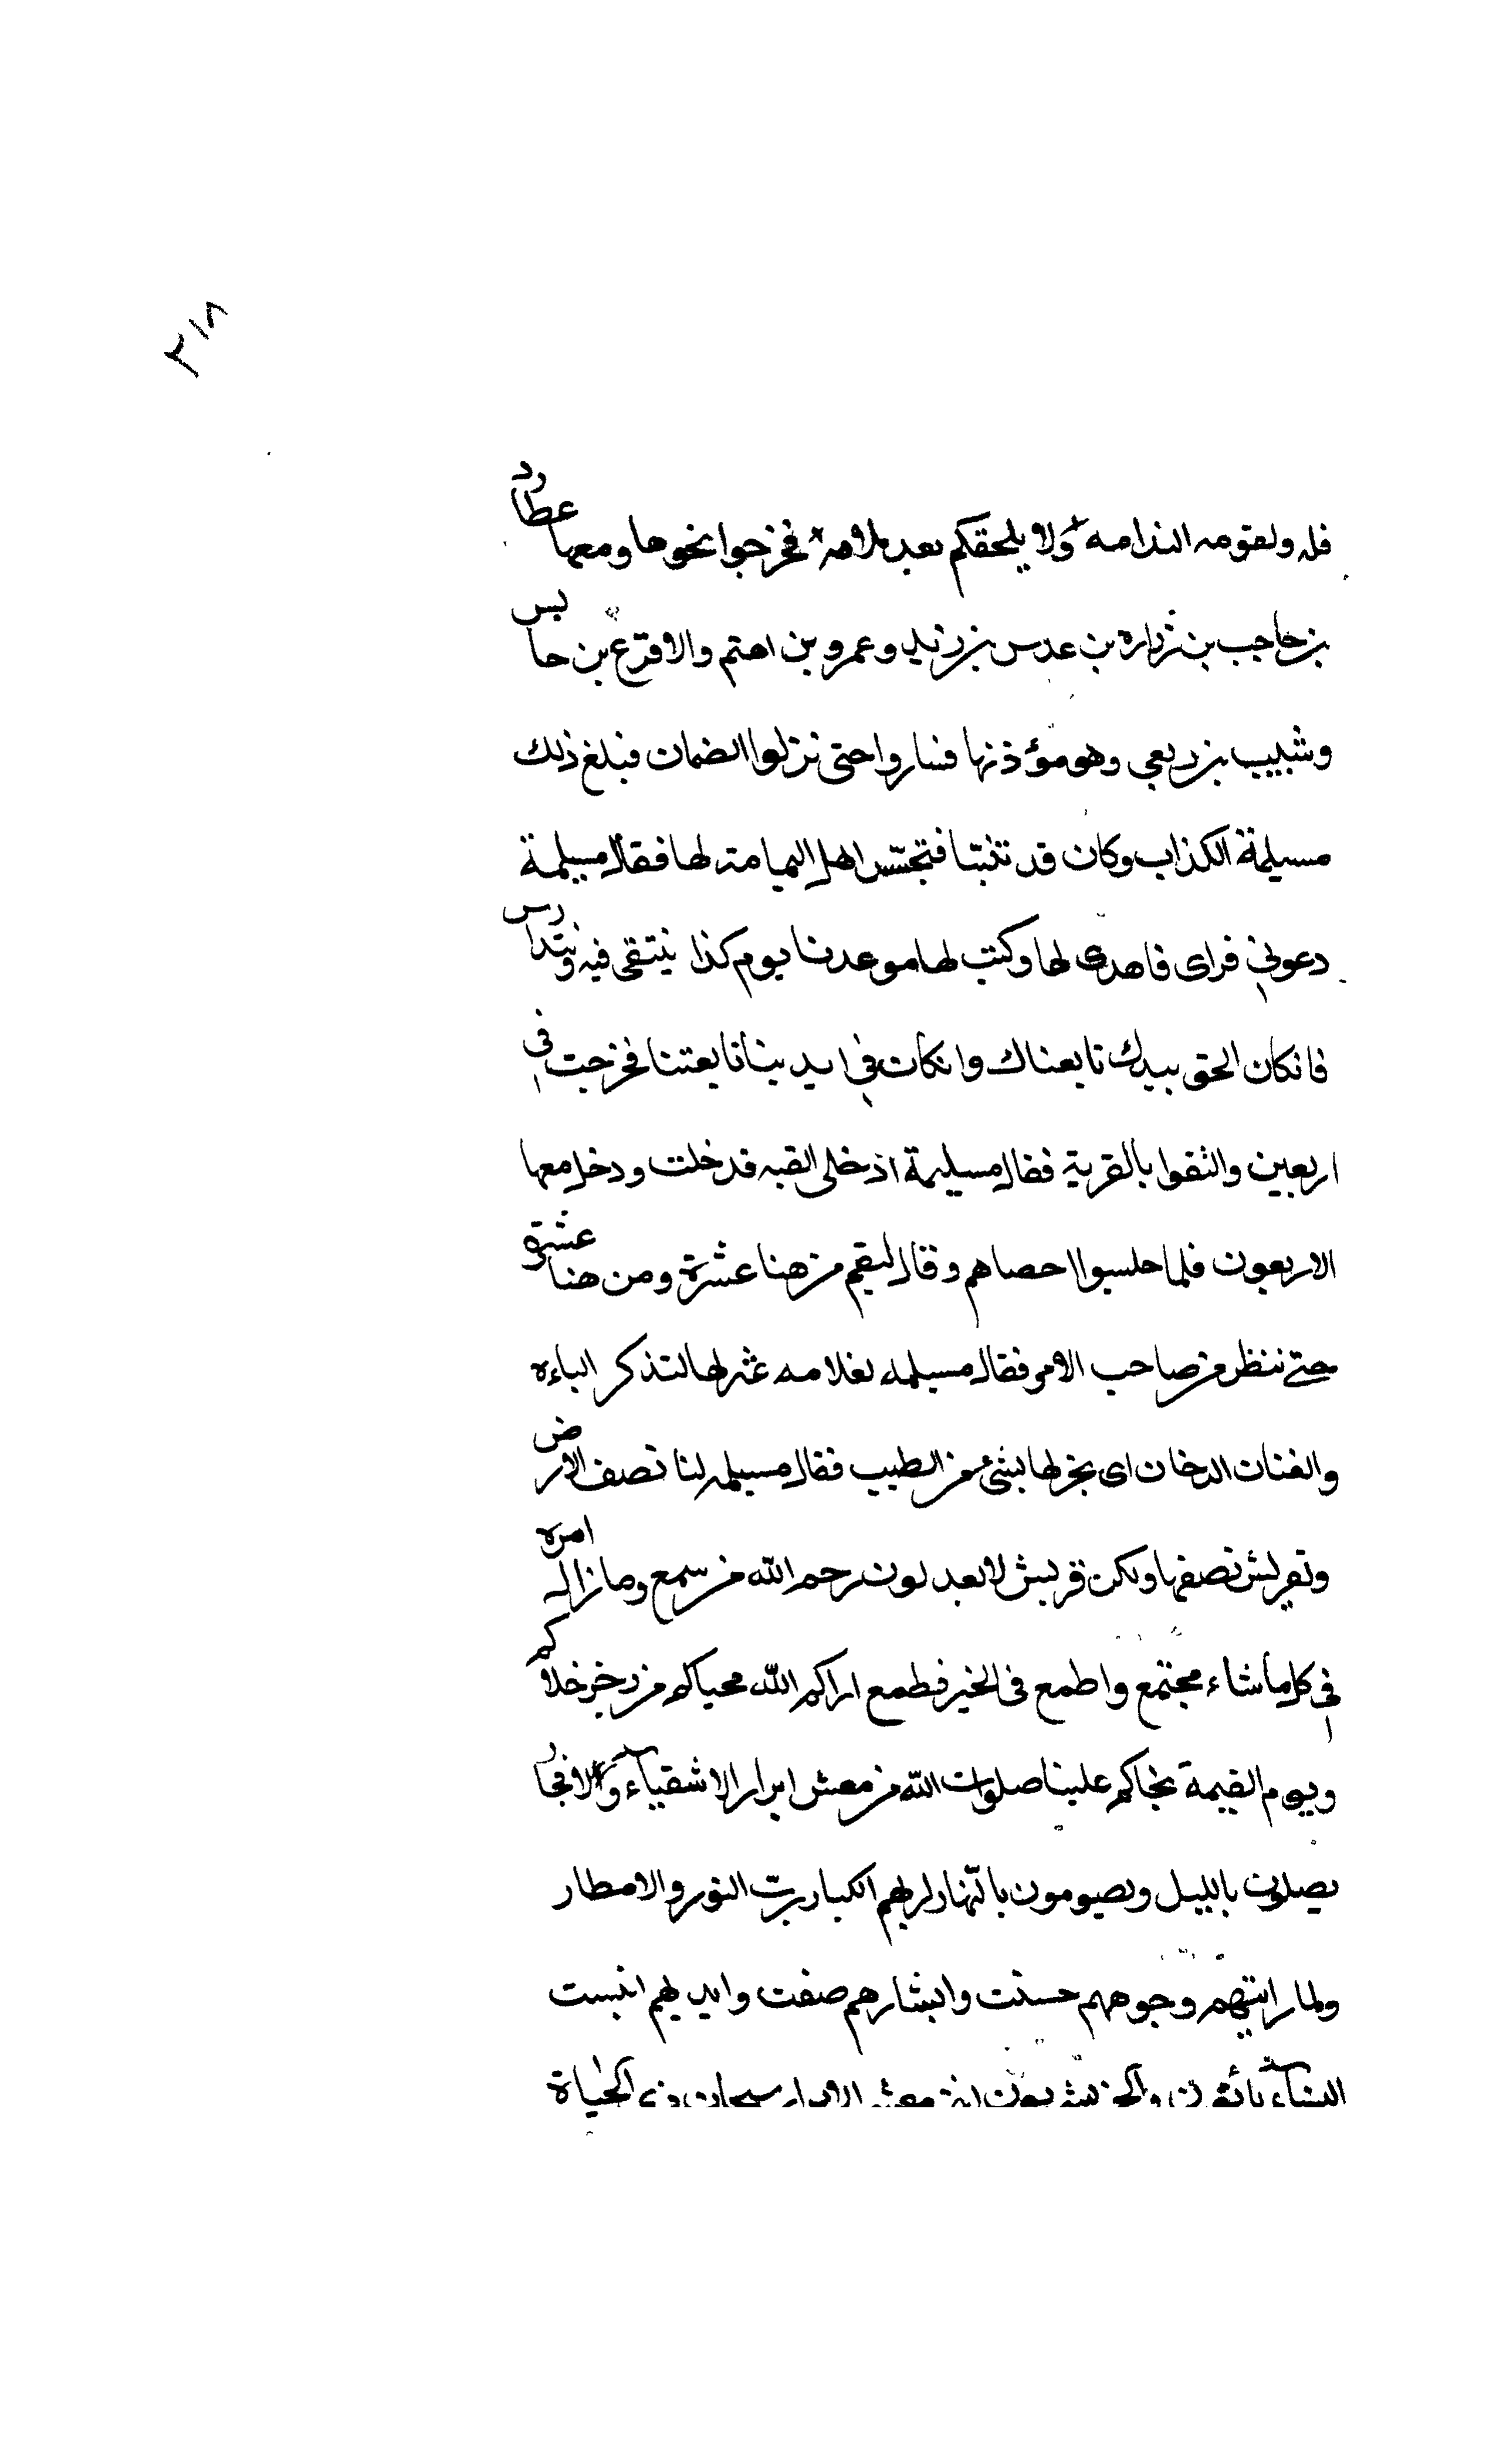 ٢١٨
ولا يلحقكم بعد ملامه فخرجوا نحوها ومعها عطارد
بن حاجب بن زراره بن عدس بن زيد وعمرو بن اهتم والاقرع بن حابس
وشبيب بن ربعي وهو مؤذنها فساروا حتى نزلوا الضمان فبلغ ذلك
مسيلمة الكذاب وكان قد تنبتا فتجسس اهل اليمامة لها فقال مسيلمة
دعوني فرای فاهدی لها وكتب لها موعدنا يوم كذا نيتقى فيه ونتدارس
فانكان الحق بيدك تابعناك وانكان في ايدينا تابعتنا فخرجت في
اربعين والثقوا بالقرية فقال مسيلمة ادخلى القبه فدخلت ودخل معها
الاربعون فلما جلسوا احصاهم وقال ليقم من هنا عشرة ومن هنا عشرة
حتى ننظر من صاحب الامر فقال مسيلمه لغلامه عثر لها لتذكر الباءه
والغنان الدخان ای بخر لها بشئ من الطيب فقال مسيلمه لنا نصف الارض
ولقريش نصفها ولكن قريش لا يعدلون رحم الله من سمع وما زال امره
في كل ما شاء مجتمع واطمع فى الخير فطمع اراكم الله محياكم من رخبر خلاكم
ويوم القيمة نجاكم علينا صلوات الله من معش ابرار لا اشقياء ولا فجار
يصلون بالليل ويصومون بالنهار لربهم الكبار رب النور والامطار
ولما رايتهم وجوههم حسنت وابشارهم صفت وايديهم انبست
النساء يأتون معشر الابرار سبحان ذی الحياة